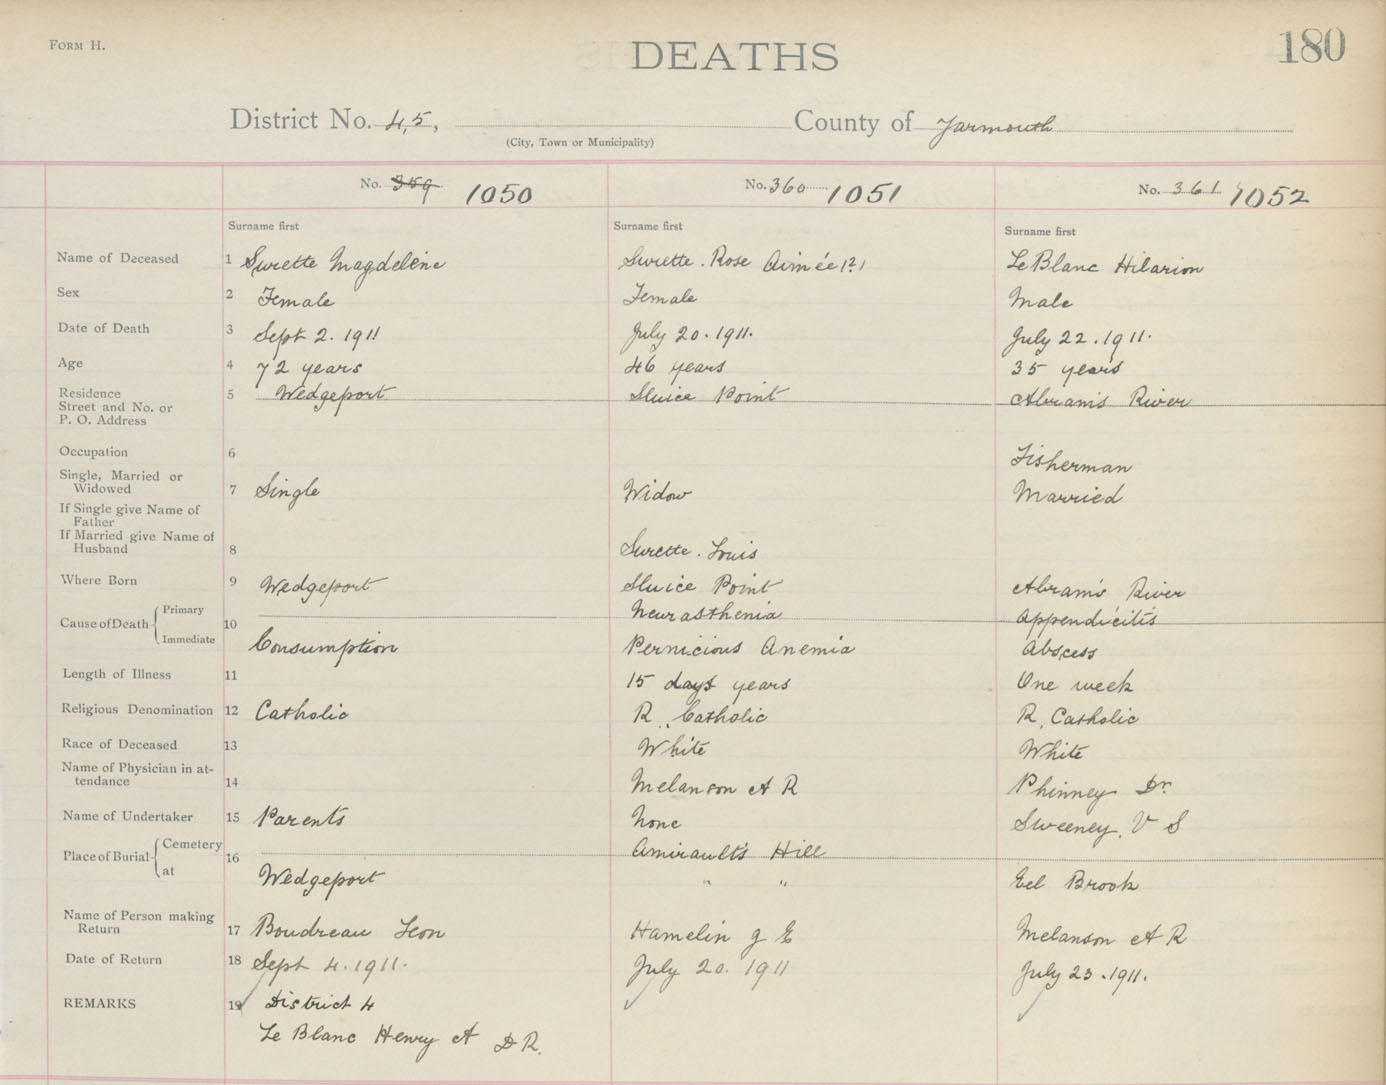 FORM H.
DEATHS
180
District No. 4,5,
County of Yarmouth
(City, Town or Municipality)
No. 359 1050
No. 360 1051
No. 361 1052
Surname first
Surname first
Surname first
Name of Deceased 1 Surette Magdelène
Surette. Rose Aimée (?)
LeBlanc Hilarion
Sex 2 Female
Female
Male
Date of Death 3 Sept 2. 1911
July 20. 1911.
July 22. 1911.
Age 4 72 years
46 years
35 years
Residence
Street and No. or
P. O. Address
5 Wedgeport
Sluice Point
Abram's River
Occupation 6
Fisherman
Single, Married or
Widowed
7 Single
Widow
Married
If Single give Name of
Father
If Married give Name of
Husband
8
Surette. Louis
Where Born 9 Wedgeport
Sluice Point
Abram's River
Cause of Death Primary
Immediate
10
Neurasthenia
Appendicitis
Consumption
Pernicious Anemia
Abscess
Length of Illness 11
15 days years
One week
Religious Denomination 12 Catholic
R. Catholic
R. Catholic
Race of Deceased 13
White
White
Name of Physician in at-
tendance
14
Melanson A R
Phinney Dr.
Name of Undertaker 15 Parents
None
Sweeney, V S
Place of Burial Cemetery
at
16
Amirault's Hill
Wedgeport
" "
Eel Brook
Name of Person making
Return
17 Boudreau Leon
Hamelin g E
Melanson A R
Date of Return 18 Sept 4. 1911.
July 20. 1911
July 23. 1911.
REMARKS 19 District 4
Le Blanc Henry A D R.